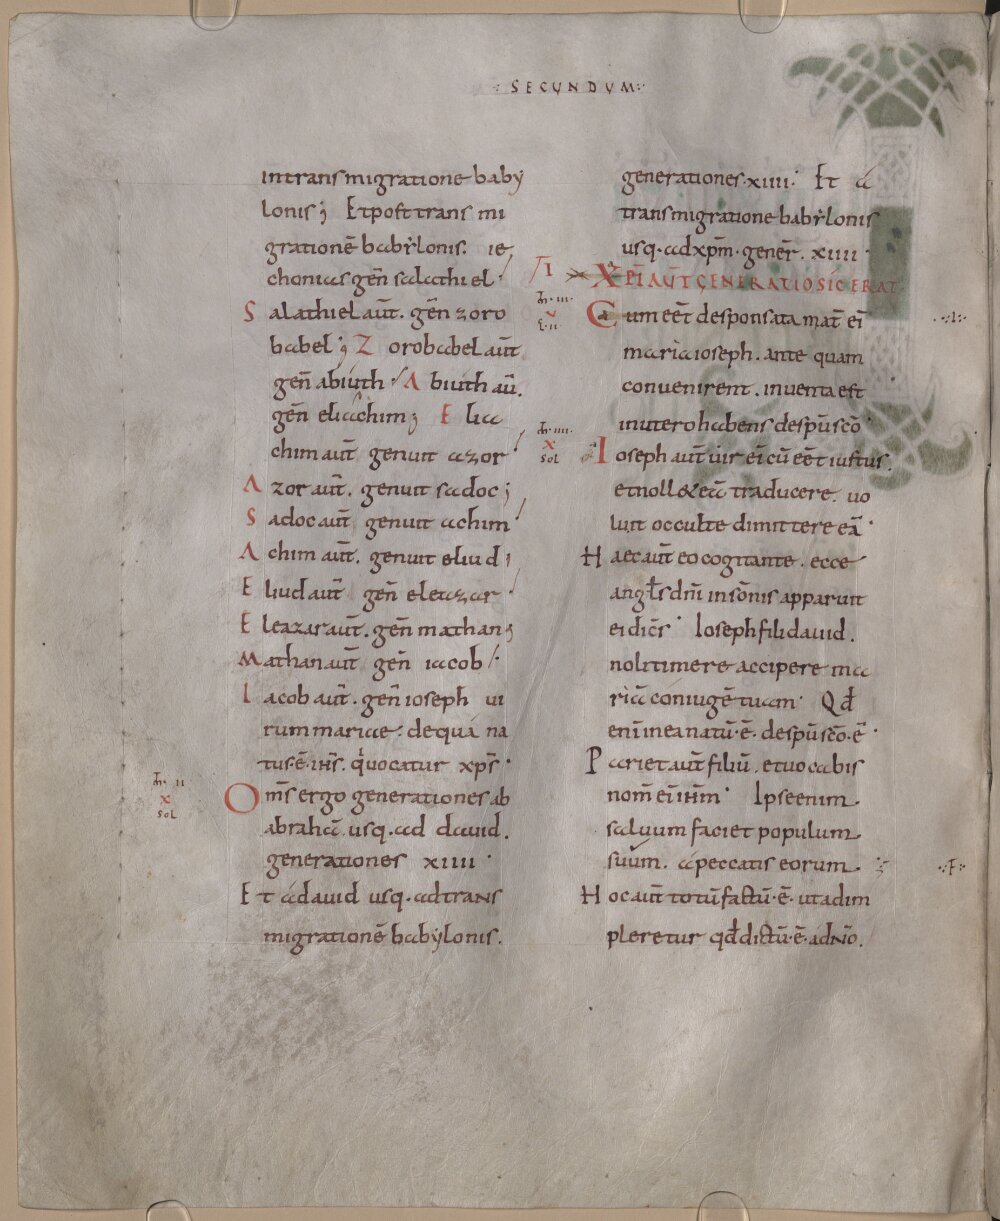 ·:SECUNDUM:·
in transmigratione baby
lonis; Et post trans mi
gratione babylonis. ie
chonias geñ salathiel·
Salathiel aut̄. geñ zoro
babel; Zorobabel aut̄
geñ abiuth· Abiuth aū.
geñ eliachim; Elia
chim aut̄ genuit azor
Azor aut̄. genuit sadoc;
Sadoc aut̄ genuit achim
Achim aut̄. genuit eliud;
Eliud aut̄ geñ eleazar·
Eleazar aut̄. geñ mathan;
Mathan aut̄ geñ iacob·
Iacob aut̄. geñ ioseph ui
rum mariae· de qua na
tus·ē· ih̄s. q́uocatur xp̄s·
Om̄s ergo generationes ab
abrahā usq. ad dauid.
generationes xiiii·
Et a dauid usq. ad trans
migrationē babylonis.
īr. ii
x
sol
generationes·xiiii· Et a
transmigratione babylonis
usq. ad xp̄m·geneř. xiiii·
I
XPĪ AUT̄ GENERATIO SIC ERAT
Cum eēt desponsata mat̄ ei
maria ioseph. ante quam
conuenirent. inuenta est
in utero habens de sp̄u sc̄o·
Ioseph aut̄ uir ei cū eēt iustus.
et noll& eā traducere. uo
luit occulte dimittere eā·
Haec aut̄ eo cogitante. ecce
angl̄s dnī in somnis apparuit
ei dic̄s· Ioseph fili dauid.
noli timere accipere ma
riā coniugē tuam· Qd̄
enī in ea natū·ē· de sp̄u sc̄o·ē·
Pariet aut̄ filiū. et uocabis
nom̄ ei ih̄m· Ipse enim
saluum faciet populum
suum. a peccatis eorum·
Hoc aut̄ totū factū·ē· ut adim
pleretur qd̄ dictū·ē· a dn̄o.
x
sol